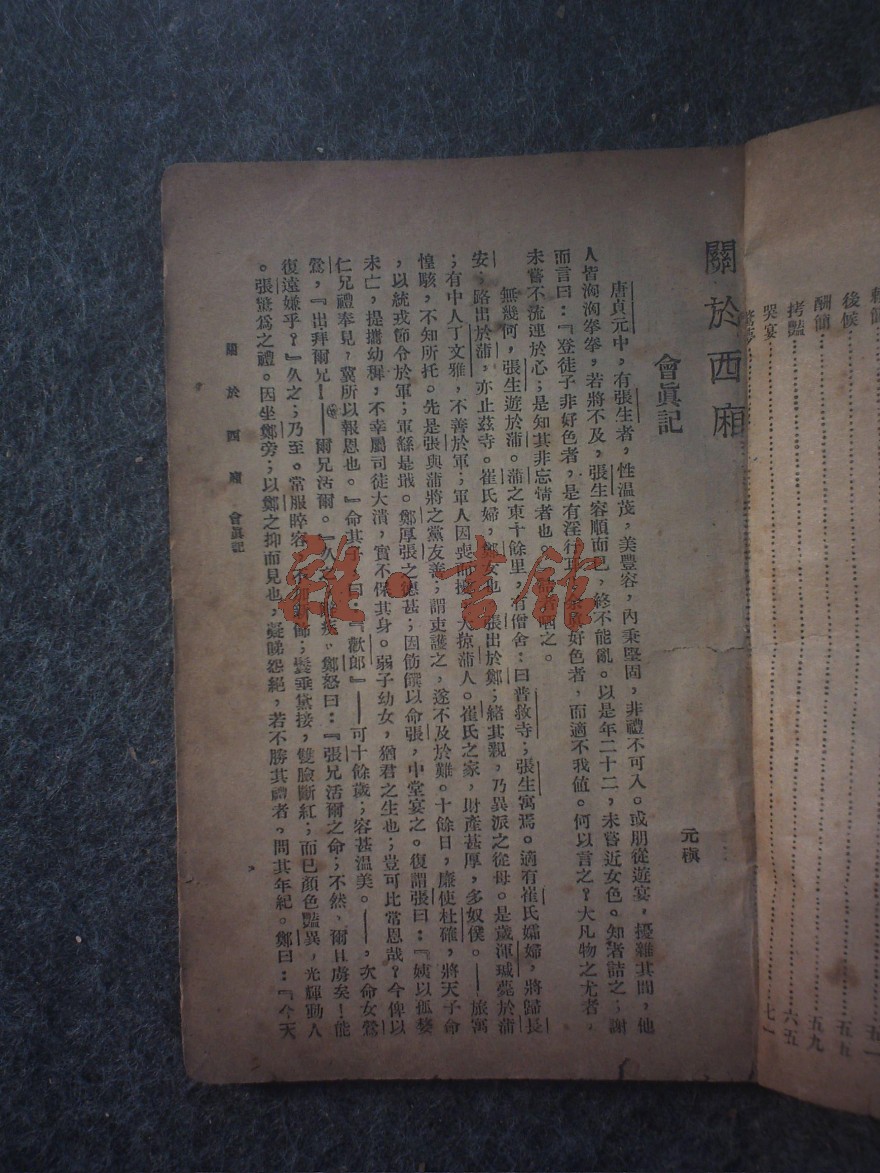 關於西廂
會眞記
元稹
唐貞元中，有張生者，性溫茂，美豐容，內秉堅固，非禮不可入。或朋從遊宴，擾雜其間，他
人皆洶洶拳拳，若將不及，張生容順而已，終不能亂。以是年二十二，未嘗近女色。知者詰之；謝
而言曰：『登徒子非好色者，是有淫行耳。余眞好色者，而適不我値。何以言之？大凡物之尤者，
未嘗不流連於心；是知其非忘情者也。』
無幾何，張生遊於蒲。蒲之東十餘里，有僧舍：曰普救寺；張生寓焉。適有崔氏孀婦，將歸長
安；路出於蒲，亦止茲寺。崔氏婦，鄭女也。張出於鄭；緒其親，乃異派之從母。是歲渾瑊薨於蒲
；有中人丁文雅，不善於軍；軍人因喪而擾，大掠蒲人。崔氏之家，財產甚厚，多奴僕。——旅寓
惶駭，不知所托。先是張與蒲將之黨友善；謂吏護之，遂不及於難。十餘日，廉使杜確，將天子命
，以統戎節令於軍；軍繇是戢。鄭厚張之德甚；因飭饌以命張，中堂宴之。復謂張曰：『姨以孤嫠
未亡，提攜幼穉，不幸屬司徒大潰，實不保其身。弱子幼女，猶君之生也；豈可比常恩哉？今俾以
仁兄禮奉見，冀所以報恩也。』命其子，曰：『歡郎』——可十餘歲；容甚溫美。——，次命女鶯
鶯，『出拜爾兄！——爾兄活爾。』久之，辭疾。鄭怒曰：『張兄活爾之命；不然，爾且虜矣！能
復遠嫌乎？』久之；乃至。常服睟容，不加新飾；鬟垂黛接，雙臉斷紅；而已顏色豔異，光輝動人
。張驚爲之禮。因坐鄭旁；以鄭之抑而見也，凝睇怨絕，若不勝其禮者，問其年紀。鄭曰：『今天
關於西廂 會眞記
後候
五五
酬簡
五九
拷豔
六五
哭宴
七一
雜·書館